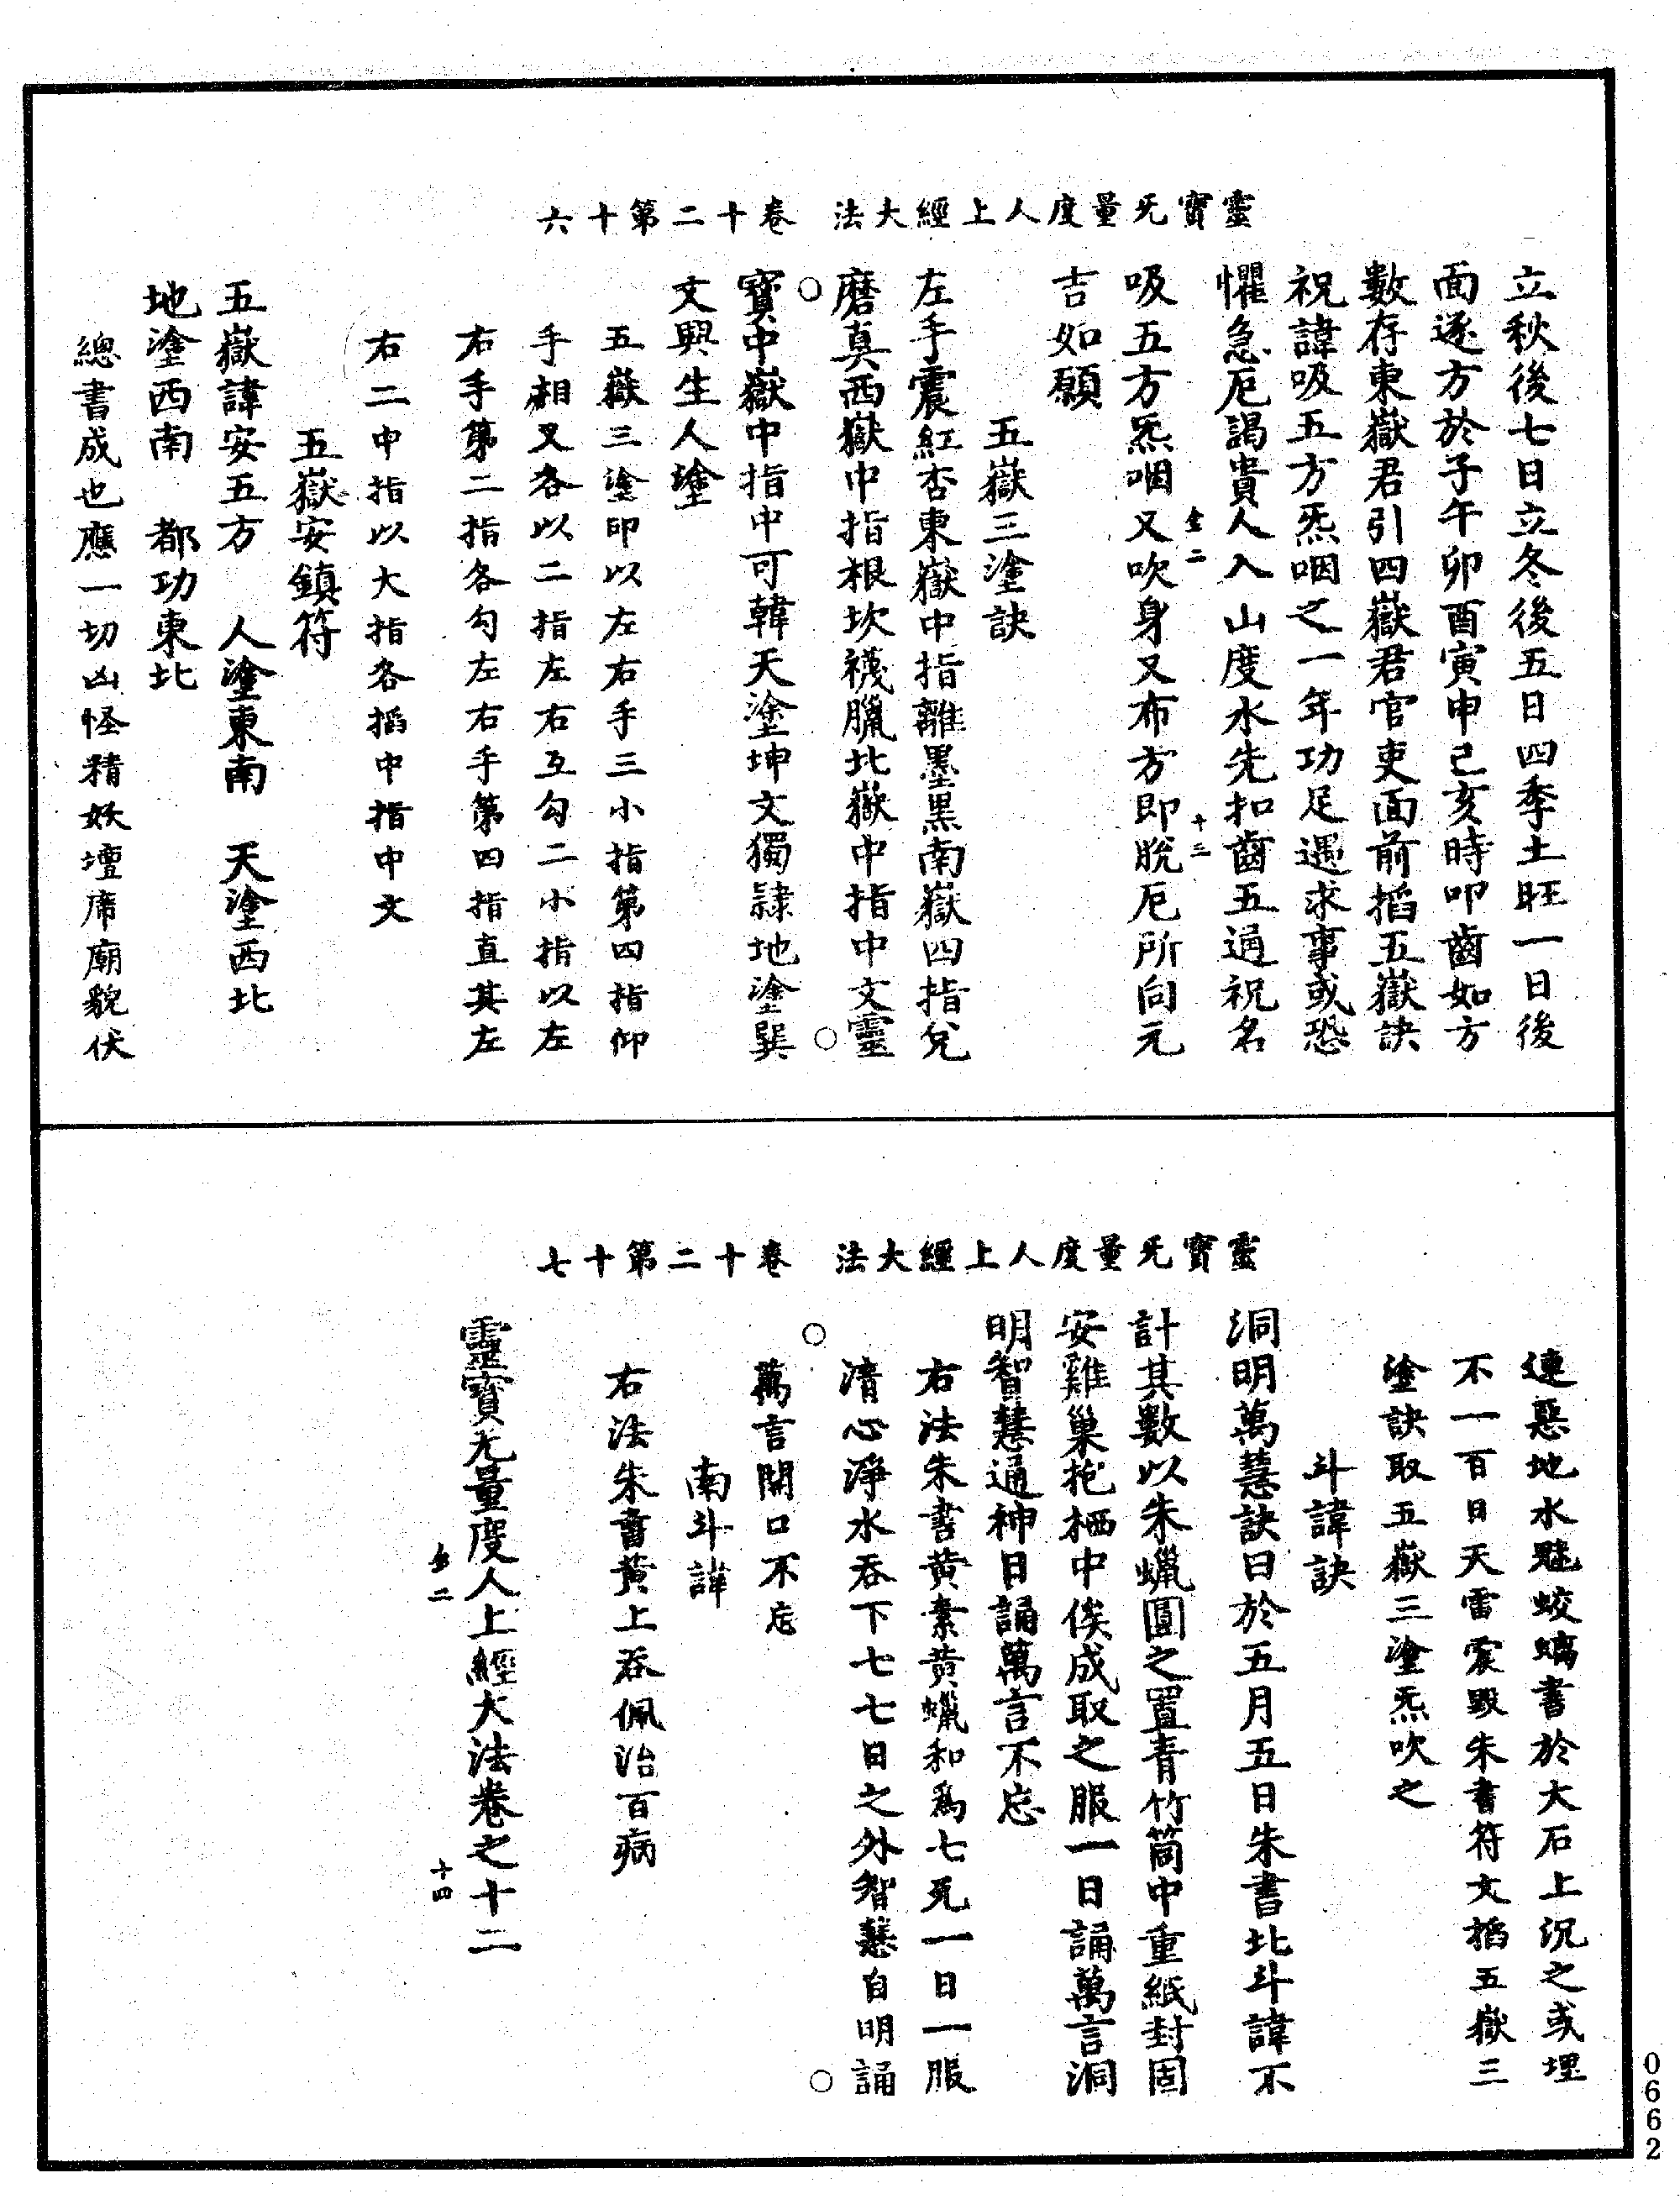 靈寶无量度人上經大法　卷十二第十六
立秋後七日立冬後五日四季土旺一日後
面逐方於子午卯酉寅申巳亥時叩齒如方
數存東嶽君引四嶽君官吏面前搯五嶽訣
祝諱吸五方炁咽之一年功足遇求事或恐
懼急厄謁貴人入山度水先扣齒五通祝名
吸五方炁咽又吹身又布方即脫厄所向元
吉如願
五嶽三塗訣
左手震紅杏東嶽中指離墨黑南嶽四指兌
磨真西嶽中指根坎襪臘北嶽中指中文靈
寶中嶽中指中可韓天塗坤文獨隸地塗巽
文興生人塗
五嶽三塗印以左右手三小指第四指仰
手相叉各以二指左右互勾二小指以左
右手第二指各勾左右手第四指直其左
右二中指以大指各搯中指中文
五嶽安鎮符
五嶽諱安五方　人塗東南　天塗西北
地塗西南　都功東北
總書成也應一切凶怪精妖壇席廟貌伏
靈寶无量度人上經大法　卷十二第十七
連惡地水魅蛟螭書於大石上沉之或埋
不一百日天雷震毀朱書符文搯五嶽三
塗訣取五嶽三塗炁吹之
斗諱訣
洞明萬慧訣曰於五月五日朱書北斗諱不
計其數以朱蠟圓之置青竹筒中重紙封固
安雞巢抱栖中俟成取之服一日誦萬言洞
明智慧通神日誦萬言不忘
右法朱書黃素黃蠟和為七丸一日一服
清心淨水吞下七七日之外智慧自明誦
萬言開口不忘
南斗諱
右法朱書黃上吞佩治百病
靈寶无量度人上經大法卷之十二
二
十三
二
十四
0662